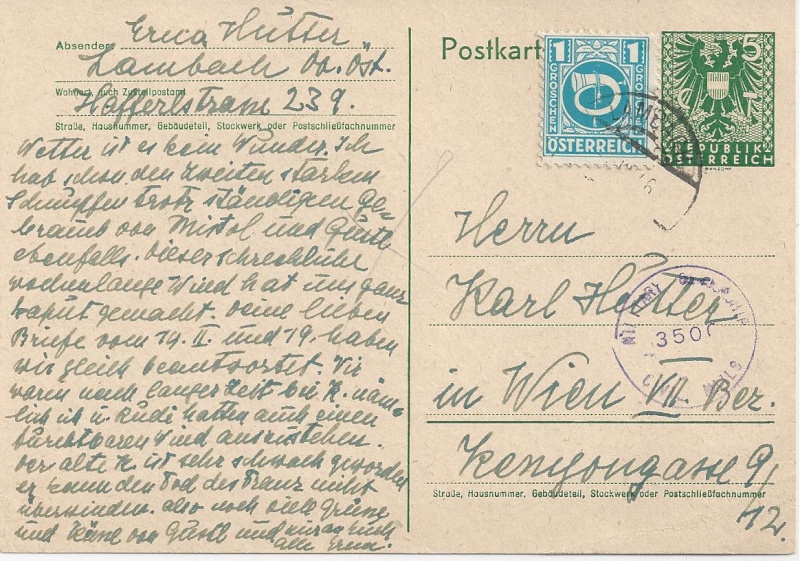 Absender: Erica Hutter
Lambach Ob. Öst.
Wohnort, auch Zustellpostamt
Hafferlstrasse 239.
Straße, Hausnummer, Gebäudeteil, Stockwerk oder Postschließfachnummer
Wetter ist es kein Wunder. Ich
hab schon den zweiten starken
Schnupfen trotz ständigen Ge-
brauch von Mistol und Gustl
ebenfalls. Dieser schreckliche
wochenlange Wind hat uns ganz
kaput gemacht. Deine lieben
Briefe vom 14. II und 19. haben
wir gleich beantwortet. Wir
waren nach langer Zeit bei K. näm-
lich ich u. Rudi hatten auch einen
furchtbaren Wind auszustehen.
Der alte K. ist sehr schwach geworden
er kann den Tod des Franz nicht
überwinden. Also noch viele Grüsse
und Küsse von Gustl und mir an Euch
alle Erica.
Postkart
1 1
GROSCHEN GROSCHEN
ÖSTERREICH
5
REPUBLIK
ÖSTERREICH
Herrn
Karl Hutter
MILITARY CENSORSHIP
350
CIVIL MAILS
in Wien VII. Bez.
Kenyongasse 9/
12.
Straße, Hausnummer, Gebäudeteil, Stockwerk oder Postschließfachnummer